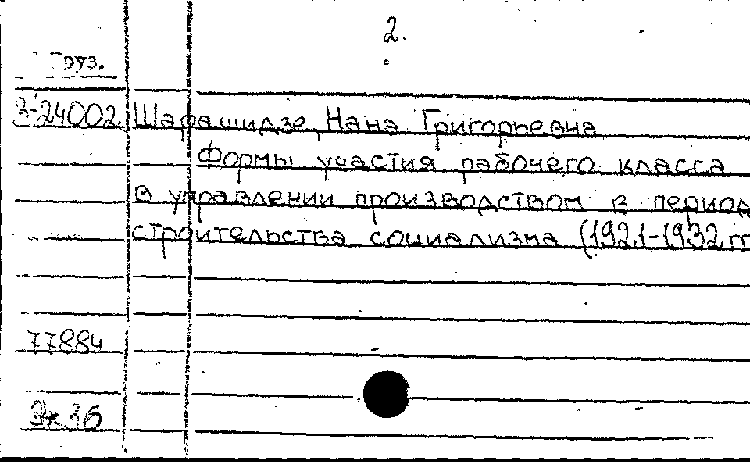 2.
Груз.
3-24002 Шарашидзе, Нана Григорьевна
Формы участия рабочего класса
в управлении производством в период
строительства социализма (1921-1932 гг
77884
Эк 3б